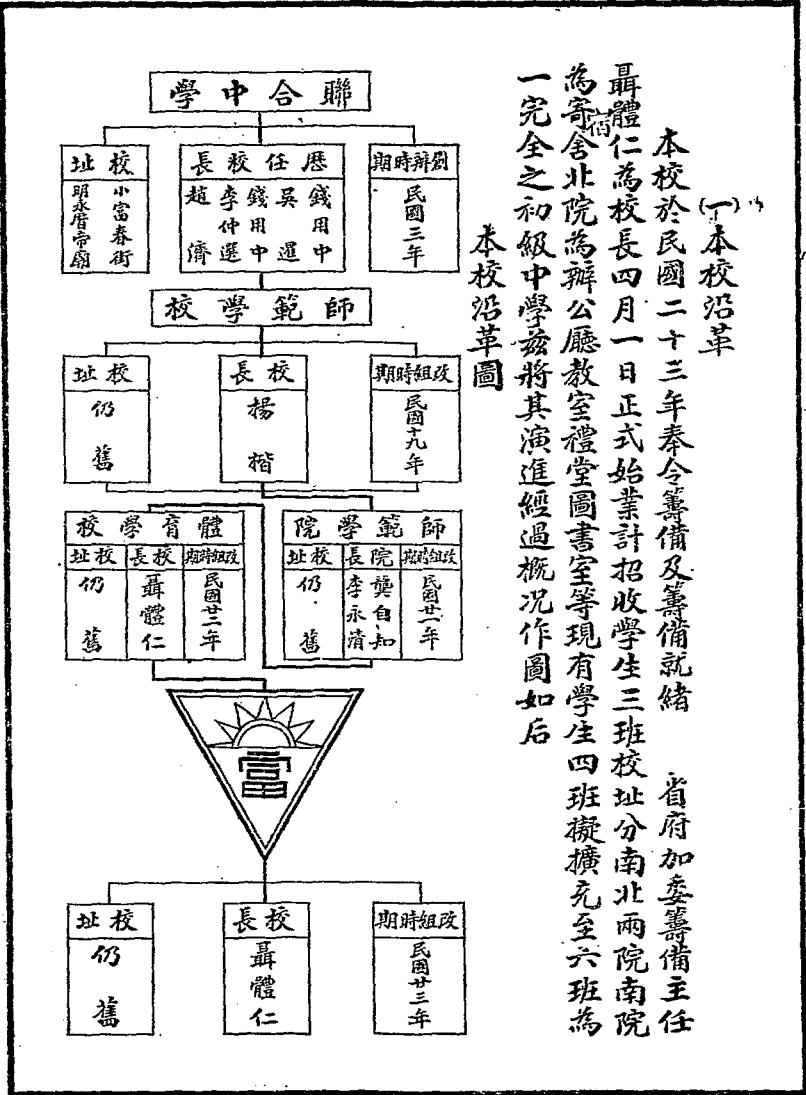 (一)本校沿革
本校於民國二十三年奉令籌備及籌備就緒 省府加委籌備主任
聶體仁為校長四月一日正式始業計招收學生三班校址分南北兩院南院
為寄宿舍北院為辦公廳教室禮堂圖書室等現有學生四班擬擴充至六班為
一完全之初級中學茲將其演進經過概況作圖如后
本校沿革圖
聯合中學
創辦時期
民國三年
歷任校長
錢用中
吳暹
錢用中
李仲選
趙濟
校址
小富春街
明永曆帝廟
師範學校
改組時期
民國十九年
校長
楊楷
校址
仍舊
師範學院
改組時期
民國廿一年
院長
龔自知
李永清
校址
仍舊
體育學校
改組時期
民國廿二年
校長
聶體仁
校址
仍舊
富
改組時期
民國廿三年
校長
聶體仁
校址
仍舊